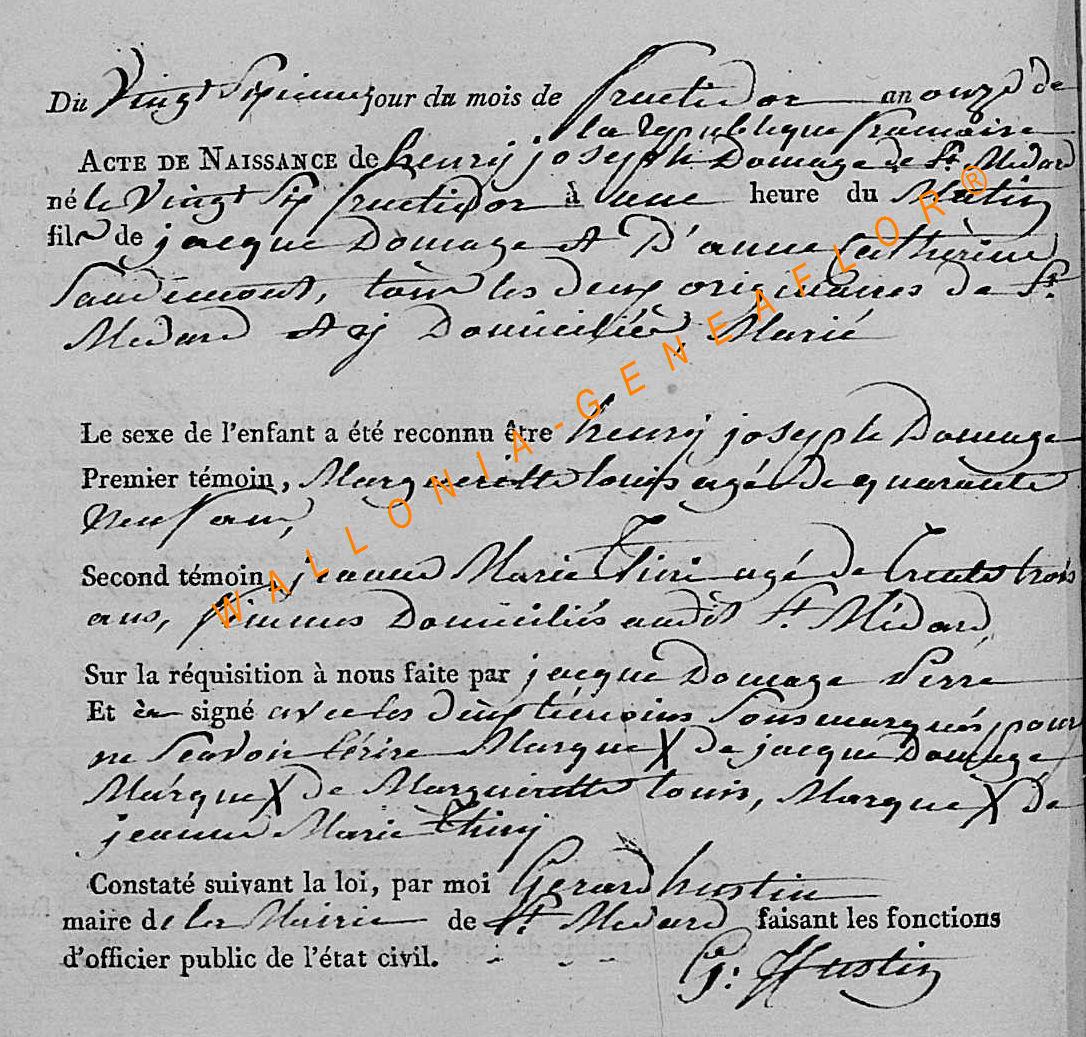 Du Vingt Sixieme jour du mois de fructidor an onze de
la republique francaise
ACTE DE NAISSANCE de henrij joseph Domage de St. Medard
né le Vingt Six fructidor à une heure du Matin
fils de jacque Domage et D'anne Catherine
tous les deux originaires de St.
Medard et ij Domiciliés, Marié
Le sexe de l'enfant a été reconnu être henrij joseph Domage
Premier témoin, Margueritte louis agée de quarante
Neuf ans,
Second témoin, jeanne Marie Thiri agé de trente trois
ans, femmes Domiciliés audit St. Médard
Sur la réquisition à nous faite par jacque Domage Perre
Et signé avec les deux témoins Sousmarqués, pour
ne Scavoir Ecrire Marque X de jacque Domage
Marque X de Marguerette louis, Marque X de
jeanne Marie Thirij
Constaté suivant la loi, par moi Gerard hustin
maire de la Mairie de St. Medard faisant les fonctions
d'officier public de l'état civil.
G: Hustin
WALLONIA-GENEAFLOR®